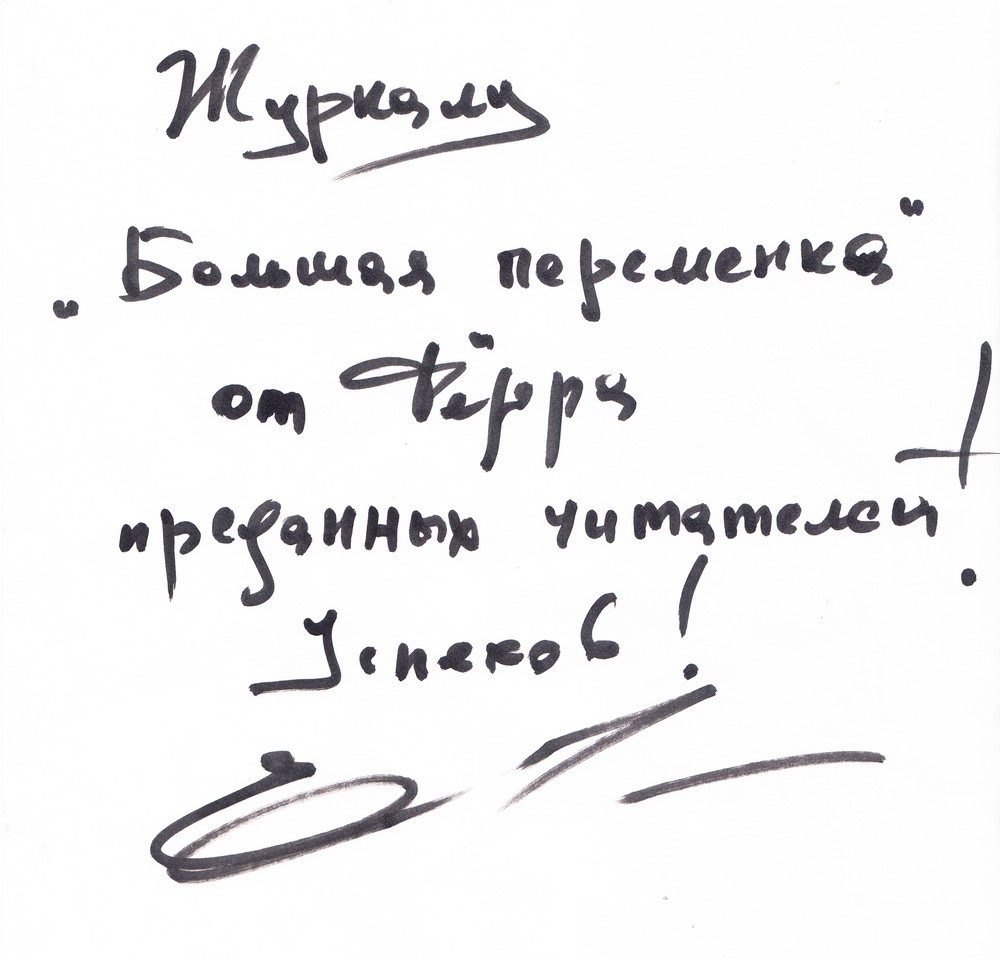 Журналу
"Большая переменка"
от
преданных читателей!
Успехов!